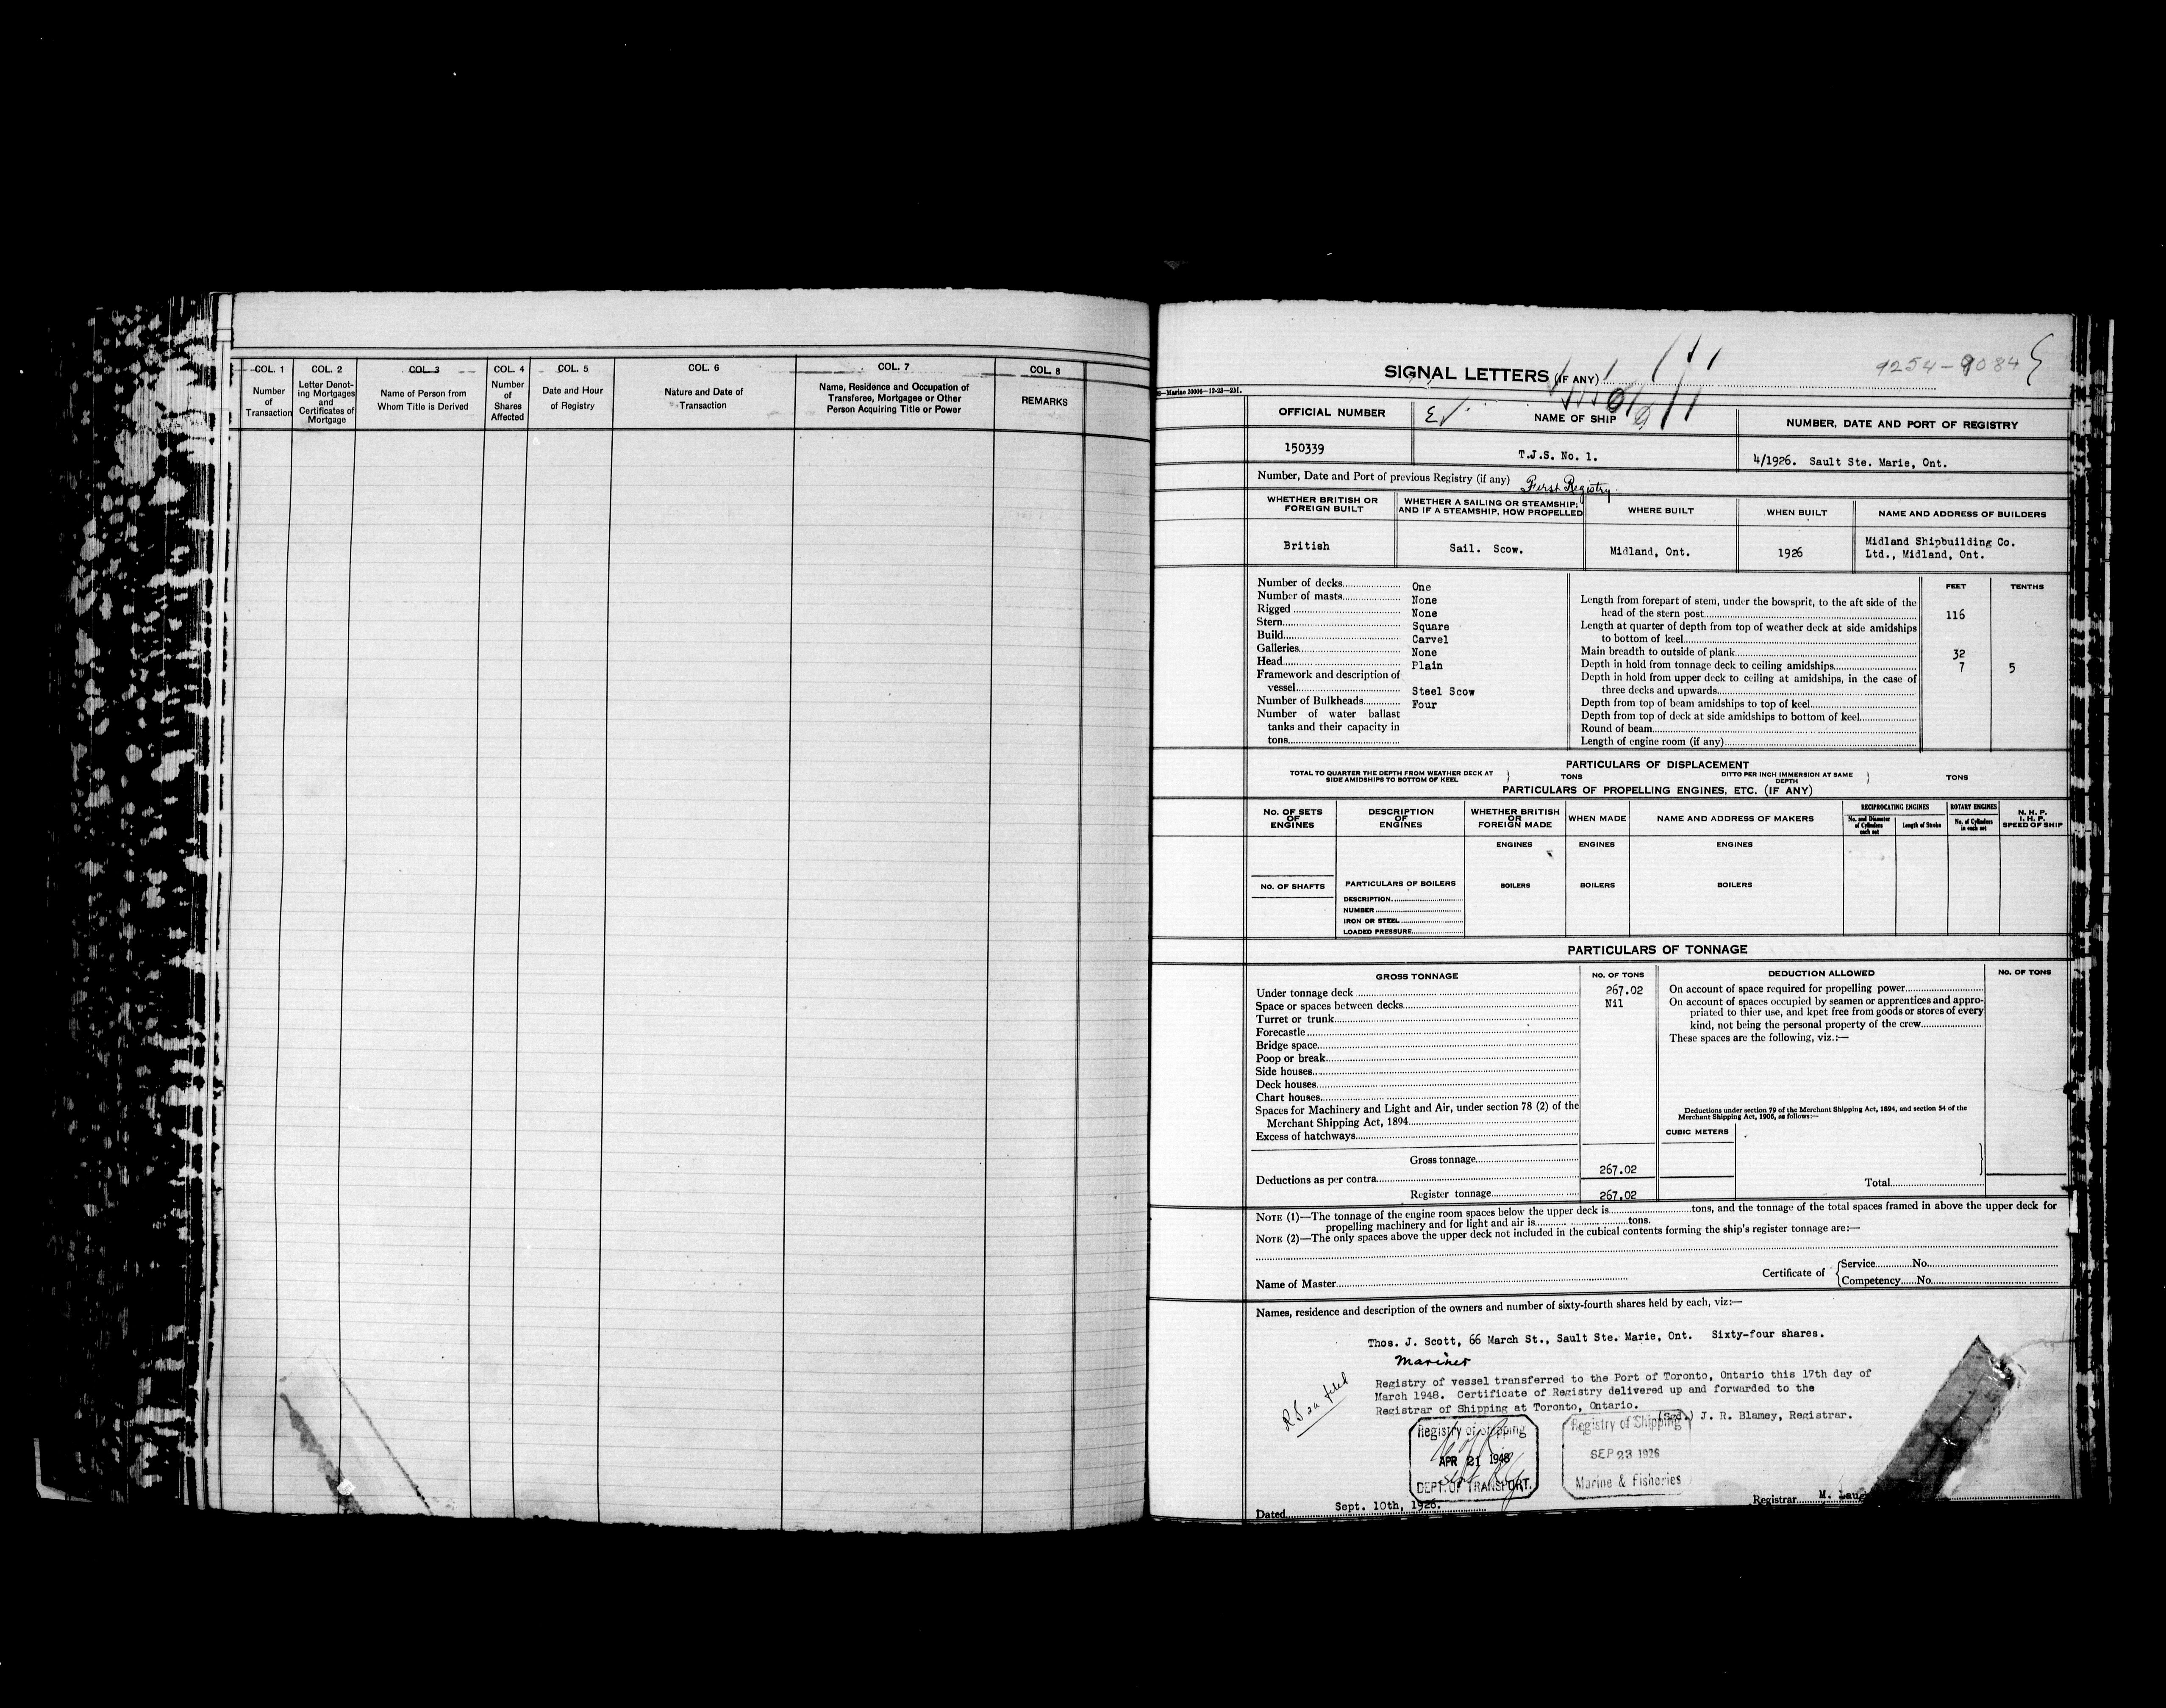 COL. 1
Number
of
Transaction
COL. 2
Letter Denot-
ing Mortgages
and
Certificates of
Mortgage
COL. 3
Name of Person from
Whom Title is Derived
COL. 4
Number
of
Shares
Affected
COL. 5
Date and Hour
of Registry
COL. 6
Nature and Date of
Transaction
COL. 7
Name, Residence and Occupation of
Transferee, Mortgagee or Other
Person Acquiring Title or Power
COL. 8
REMARKS
SIGNAL LETTERS (IF ANY)
9254-9084
—Marine 20006—12-23—2M.
OFFICIAL NUMBER
NAME OF SHIP
NUMBER, DATE AND PORT OF REGISTRY
150339
T.J.S. No. 1.
4/1926. Sault Ste. Marie, Ont.
Number, Date and Port of previous Registry (if any) First Registry.
WHETHER BRITISH OR
FOREIGN BUILT
WHETHER A SAILING OR STEAMSHIP;
AND IF A STEAMSHIP, HOW PROPELLED
WHERE BUILT
WHEN BUILT
NAME AND ADDRESS OF BUILDERS
British
Sail. Scow.
Midland, Ont.
1926
Midland Shipbuilding Co.
Ltd., Midland, Ont.
Number of decks One
Number of masts None
Rigged None
Stern Square
Build Carvel
Galleries None
Head Plain
Framework and description of
vessel Steel Scow
Number of Bulkheads Four
Number of water ballast
tanks and their capacity in
tons
FEET TENTHS
Length from forepart of stem, under the bowsprit, to the aft side of the
head of the stern post 116
Length at quarter of depth from top of weather deck at side amidships
to bottom of keel
Main breadth to outside of plank 32
Depth in hold from tonnage deck to ceiling amidships 7 5
Depth in hold from upper deck to ceiling at amidships, in the case of
three decks and upwards
Depth from top of beam amidships to top of keel
Depth from top of deck at side amidships to bottom of keel
Round of beam
Length of engine room (if any)
PARTICULARS OF DISPLACEMENT
TOTAL TO QUARTER THE DEPTH FROM WEATHER DECK AT
SIDE AMIDSHIPS TO BOTTOM OF KEEL
TONS
DITTO PER INCH IMMERSION AT SAME
DEPTH
TONS
PARTICULARS OF PROPELLING ENGINES, ETC. (IF ANY)
NO. OF SETS
OF
ENGINES
DESCRIPTION
OF
ENGINES
WHETHER BRITISH
OR
FOREIGN MADE
WHEN MADE
NAME AND ADDRESS OF MAKERS
RECIPROCATING ENGINES
No. and Diameter
of Cylinders
each set
Length of Stroke
ROTARY ENGINES
No. of Cylinders
in each set
N. H. P.
I. H. P.
SPEED OF SHIP
ENGINES
ENGINES
ENGINES
NO. OF SHAFTS
PARTICULARS OF BOILERS
BOILERS
BOILERS
BOILERS
DESCRIPTION
NUMBER
IRON OR STEEL
LOADED PRESSURE
PARTICULARS OF TONNAGE
GROSS TONNAGE
NO. OF TONS
DEDUCTION ALLOWED
NO. OF TONS
Under tonnage deck 267.02
Space or spaces between decks Nil
Turret or trunk
Forecastle
Bridge space
Poop or break
Side houses
Deck houses
Chart houses
Spaces for Machinery and Light and Air, under section 78 (2) of the
Merchant Shipping Act, 1894
Excess of hatchways
Gross tonnage 267.02
Deductions as per contra
Register tonnage 267.02
On account of space required for propelling power
On account of spaces occupied by seamen or apprentices and appro-
priated to thier use, and kpet free from goods or stores of every
kind, not being the personal property of the crew
These spaces are the following, viz.:—
Deductions under section 79 of the Merchant Shipping Act, 1894, and section 54 of the
Merchant Shipping Act, 1906, as follows:—
CUBIC METERS
Total
NOTE (1)—The tonnage of the engine room spaces below the upper deck is tons, and the tonnage of the total spaces framed in above the upper deck for
propelling machinery and for light and air is tons.
NOTE (2)—The only spaces above the upper deck not included in the cubical contents forming the ship's register tonnage are:—
Name of Master
Certificate of
Service No.
Competency No.
Names, residence and description of the owners and number of sixty-fourth shares held by each, viz:—
Thos. J. Scott, 66 March St., Sault Ste. Marie, Ont. Sixty-four shares.
Mariner
Registry of vessel transferred to the Port of Toronto, Ontario this 17th day of
March 1948. Certificate of Registry delivered up and forwarded to the
Registrar of Shipping at Toronto, Ontario.
(Sgd.) J. R. Blamey, Registrar.
Registry of Shipping
APR 21 1948
DEPT. OF TRANSPORT.
Registry of Shipping
SEP 23 1926
Marine & Fisheries
Dated Sept. 10th, 1926.
Registrar M.